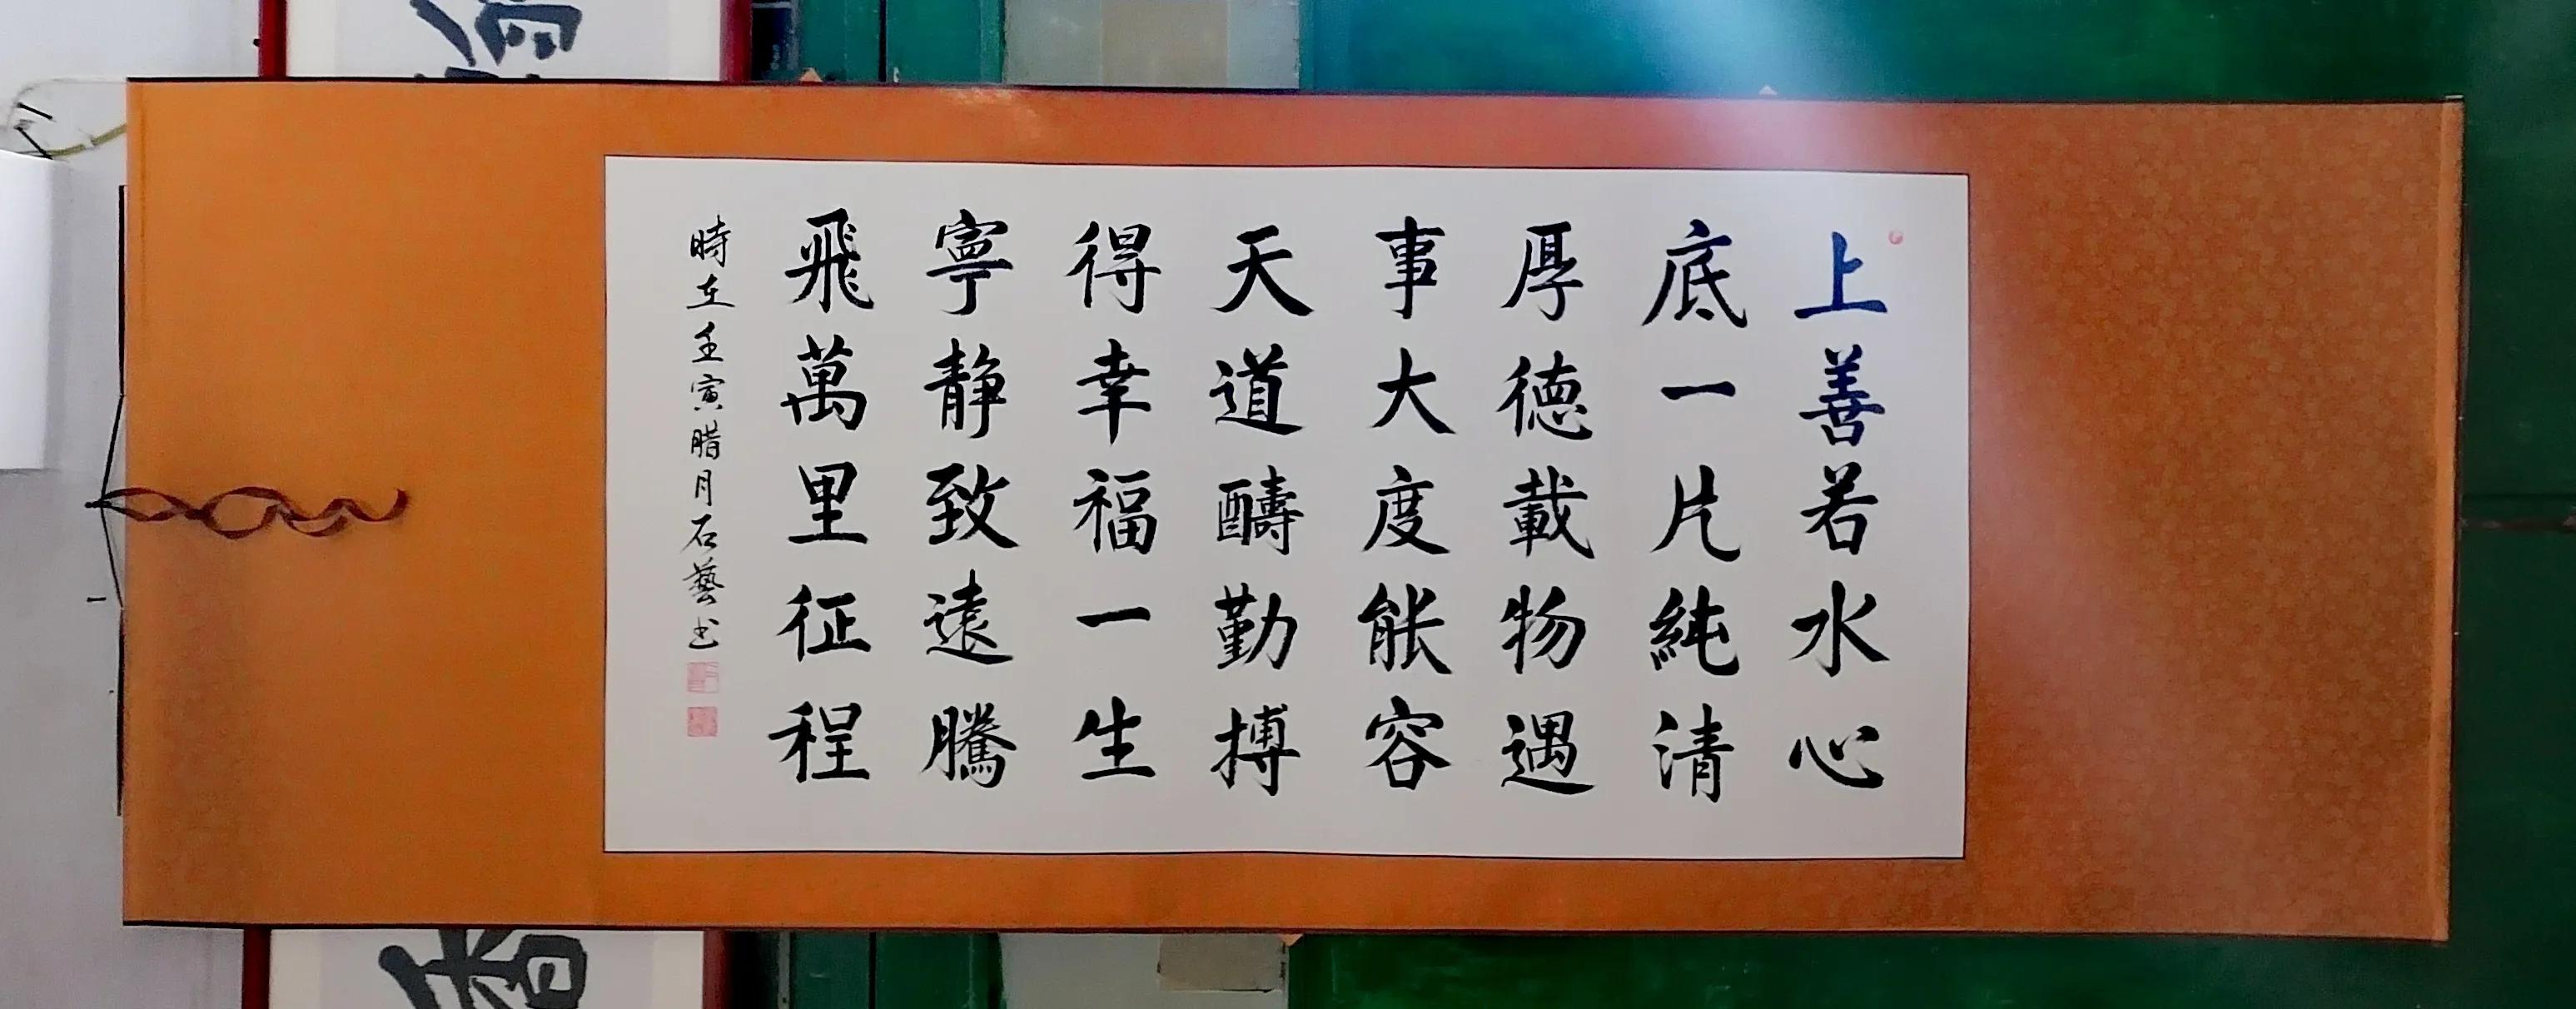 上善若水心
底一片純清
厚德載物遇
事大度能容
天道酬勤搏
得幸福一生
寧靜致遠騰
飛萬里征程
時在壬寅腊月石藝书